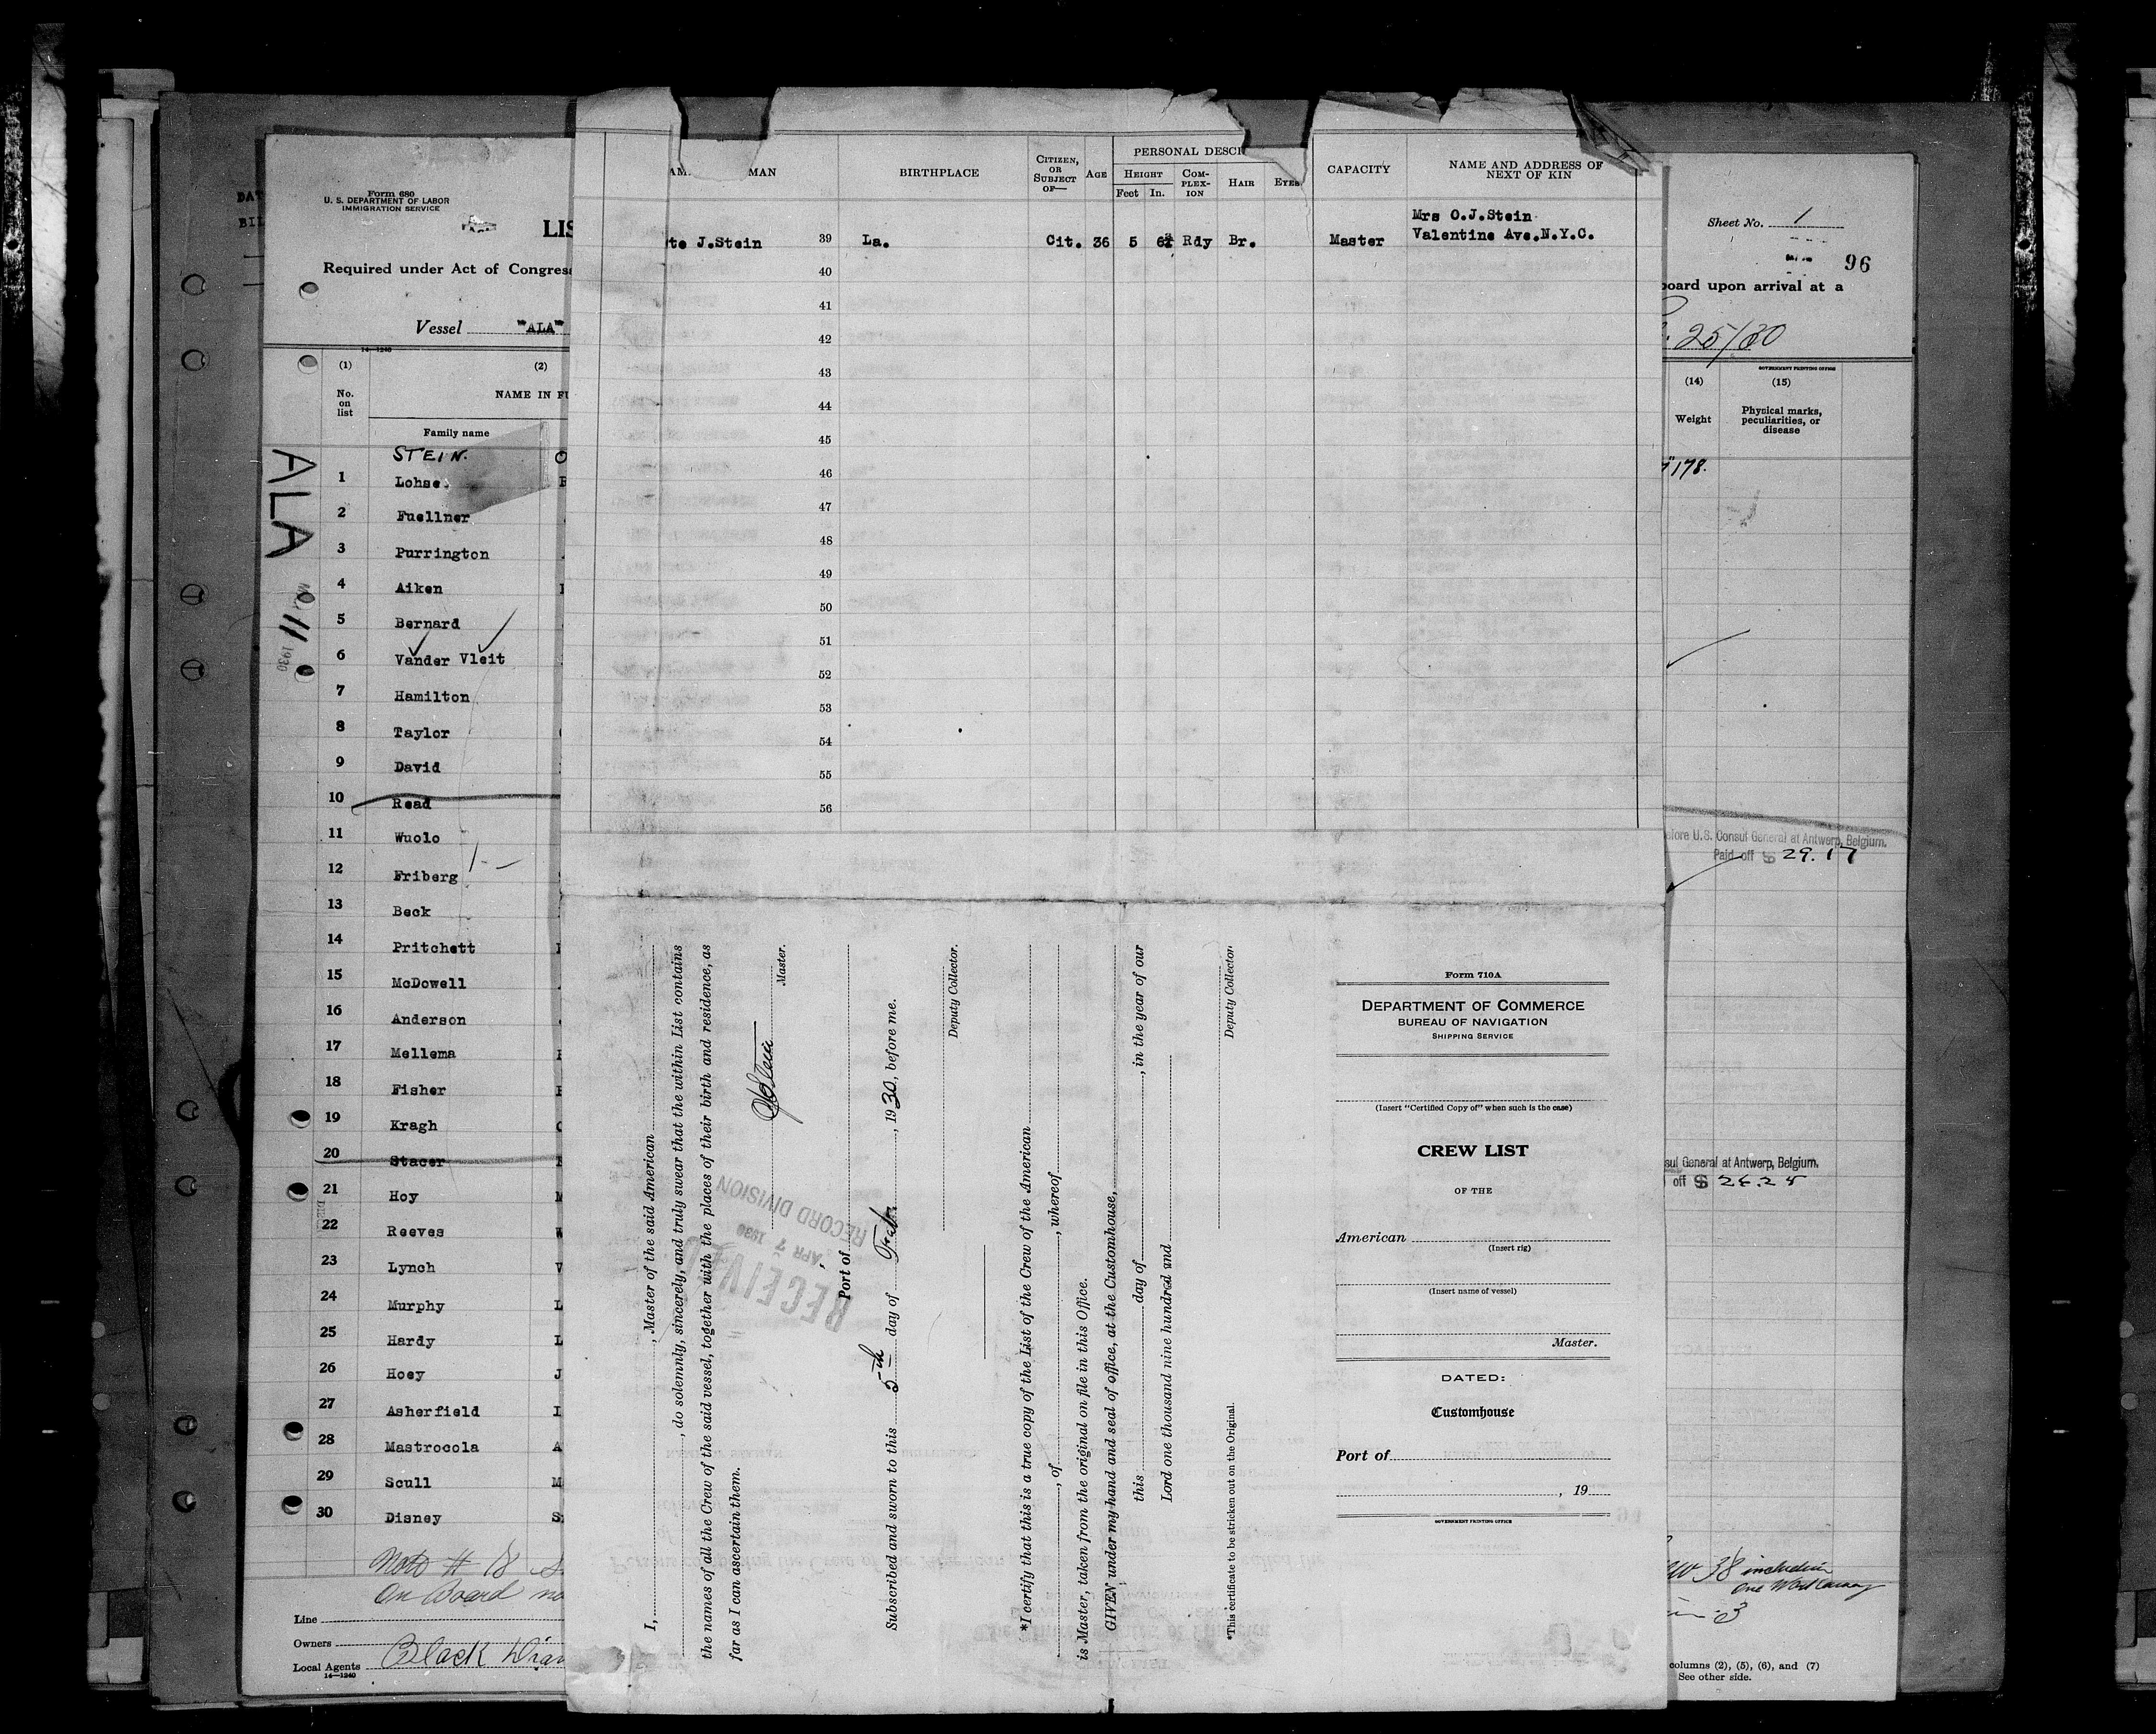 DAT
BIL
Form 680
U. S. DEPARTMENT OF LABOR
IMMIGRATION SERVICE
LIS
Required under Act of Congress
Vessel "ALA"
14—1240
(1)
(2)
No. on list
NAME IN FU
Family name
STEIN.
1 Lohse
2 Fuellner
3 Purrington
4 Aiken
5 Bernard
6 Vander Vleit
7 Hamilton
8 Taylor
9 David
10 Read
11 Wuolo
12 Friberg
13 Beck
14 Pritchett
15 McDowell
16 Anderson
17 Mellema
18 Fisher
19 Kragh
20 Stacer
21 Hoy
22 Reeves
23 Lynch
24 Murphy
25 Hardy
26 Hoey
27 Asherfield
28 Mastrocola
29 Scull
30 Disney
ALA
11 1930
Note # 18
On Board
Line
Owners
Local Agents Black Diam
14—1240
MAN
BIRTHPLACE
CITIZEN, OR SUBJECT OF—
AGE
PERSONAL DESCI
HEIGHT
Feet In.
COMPLEXION
HAIR
EYES
CAPACITY
NAME AND ADDRESS OF NEXT OF KIN
te J.Stein 39 La. Cit. 36 5 6½ Rdy Br. Master
Mrs O.J.Stein
Valentine Ave.N.Y.C.
40
41
42
43
44
45
46
47
48
49
50
51
52
53
54
55
56
I, , Master of the said American
, do solemnly, sincerely, and truly swear that the within List contains
the names of all the Crew of the said vessel, together with the places of their birth and residence, as
far as I can ascertain them.
OJStein
Master.
RECEIVED
APR 7 1930
RECORD DIVISION
Port of
Subscribed and sworn to this 5th day of Feb. , 1930, before me.
Deputy Collector.
*I certify that this is a true copy of the List of the Crew of the American
, of , whereof
is Master, taken from the original on file in this Office.
GIVEN under my hand and seal of office, at the Customhouse,
this day of , in the year of our
Lord one thousand nine hundred and
Deputy Collector.
*This certificate to be stricken out on the Original.
Form 710A
DEPARTMENT OF COMMERCE
BUREAU OF NAVIGATION
SHIPPING SERVICE
(Insert "Certified Copy of" when such is the case)
CREW LIST
OF THE
American
(Insert rig)
(Insert name of vessel)
Master.
DATED:
Customhouse
Port of
, 19
GOVERNMENT PRINTING OFFICE
Sheet No. 1
96
board upon arrival at a
25/30
GOVERNMENT PRINTING OFFICE
(14)
(15)
Weight
Physical marks, peculiarities, or disease
178.
efore U.S. Consul General at Antwerp, Belgium.
Paid off $ 29.17
sul General at Antwerp, Belgium.
off $ 26.25
38 including
One Workaway
3
columns (2), (5), (6), and (7)
See other side.